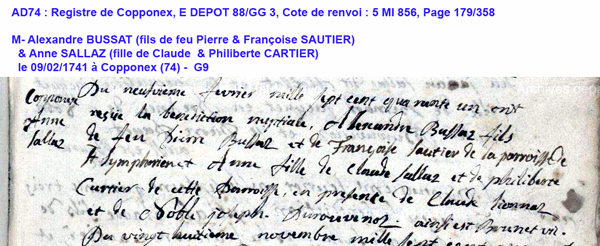 AD74 : Registre de Copponex, E DEPOT 88/GG 3, Cote de renvoi : 5 MI 856, Page 179/358
M- Alexandre BUSSAT (fils de feu Pierre & Françoise SAUTIER)
& Anne SALLAZ (fille de Claude & Philiberte CARTIER)
le 09/02/1741 à Copponex (74) - G9
Archives dep
Copponex Du neufvieme fevrier mille sept cent quarante un ont
Anne Sallaz reçue la benediction nuptiale, Alexandre Bussaz fils
de feu Pierre Bussaz et de Françoise Sautier de la parroisse de
St Symphorien et Anne fille de Claude Sallaz et de philiberte
Cartier de cette Parroisse, en presence de Claude
et de Noble joseph ainsi est Brunet vic.
Du vingt huitieme novembre mille sept cent